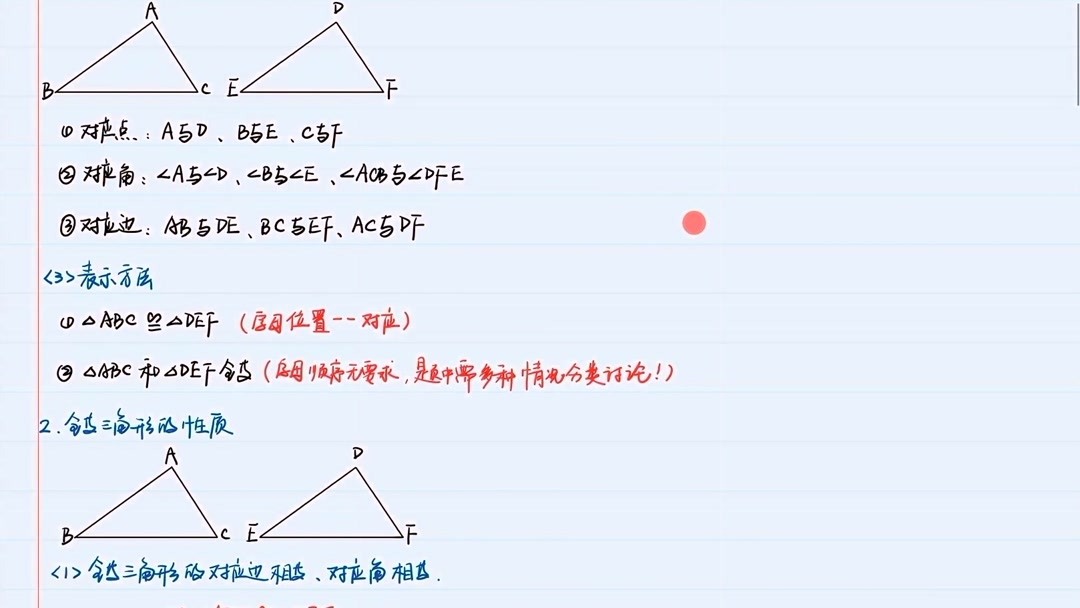 A D
B C E F
① 对应点：A与D、B与E、C与F
② 对应角：∠A与∠D、∠B与∠E、∠ACB与∠DFE
③ 对应边：AB与DE、BC与EF、AC与DF
<3>表示方法
① △ABC ≌ △DEF （字母位置一一对应）
② △ABC 和 △DEF 全等（字母顺序无要求，题中需多种情况分类讨论！）
2.全等三角形的性质
A D
B C E F
<1> 全等三角形的对应边相等、对应角相等.